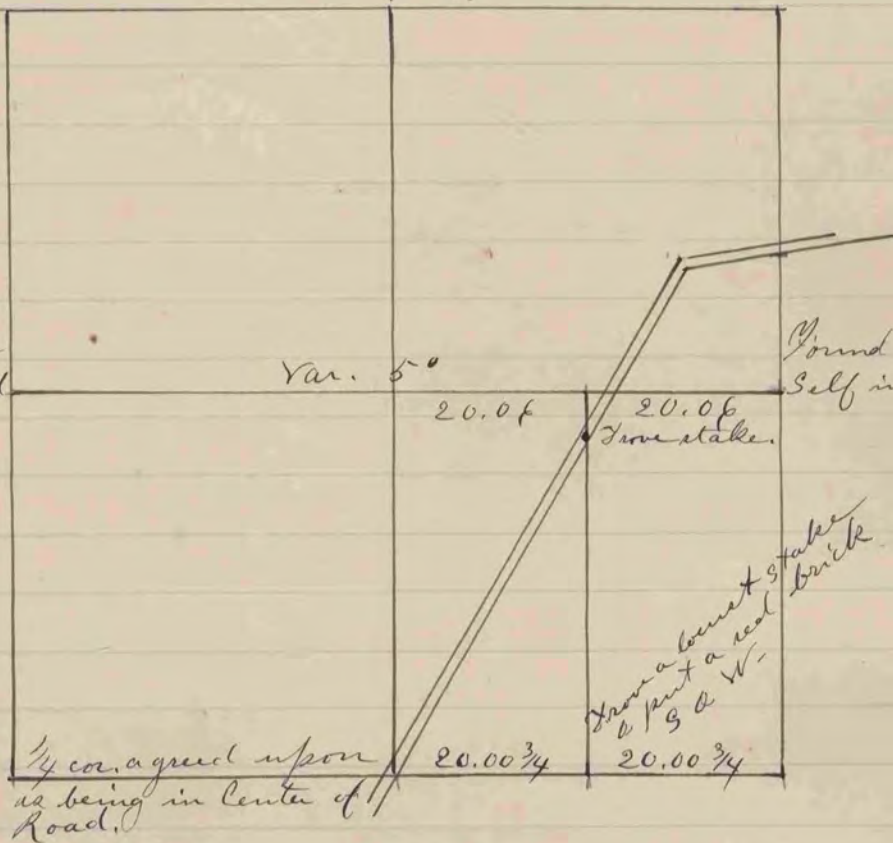 Var. 5°
Found
Self in
20.06
20.06
Drove stake.
Drove a locust stake
& put a red brick
S & W.
1/4 cor. agreed upon
as being in Center of
Road.
20.00 3/4
20.00 3/4